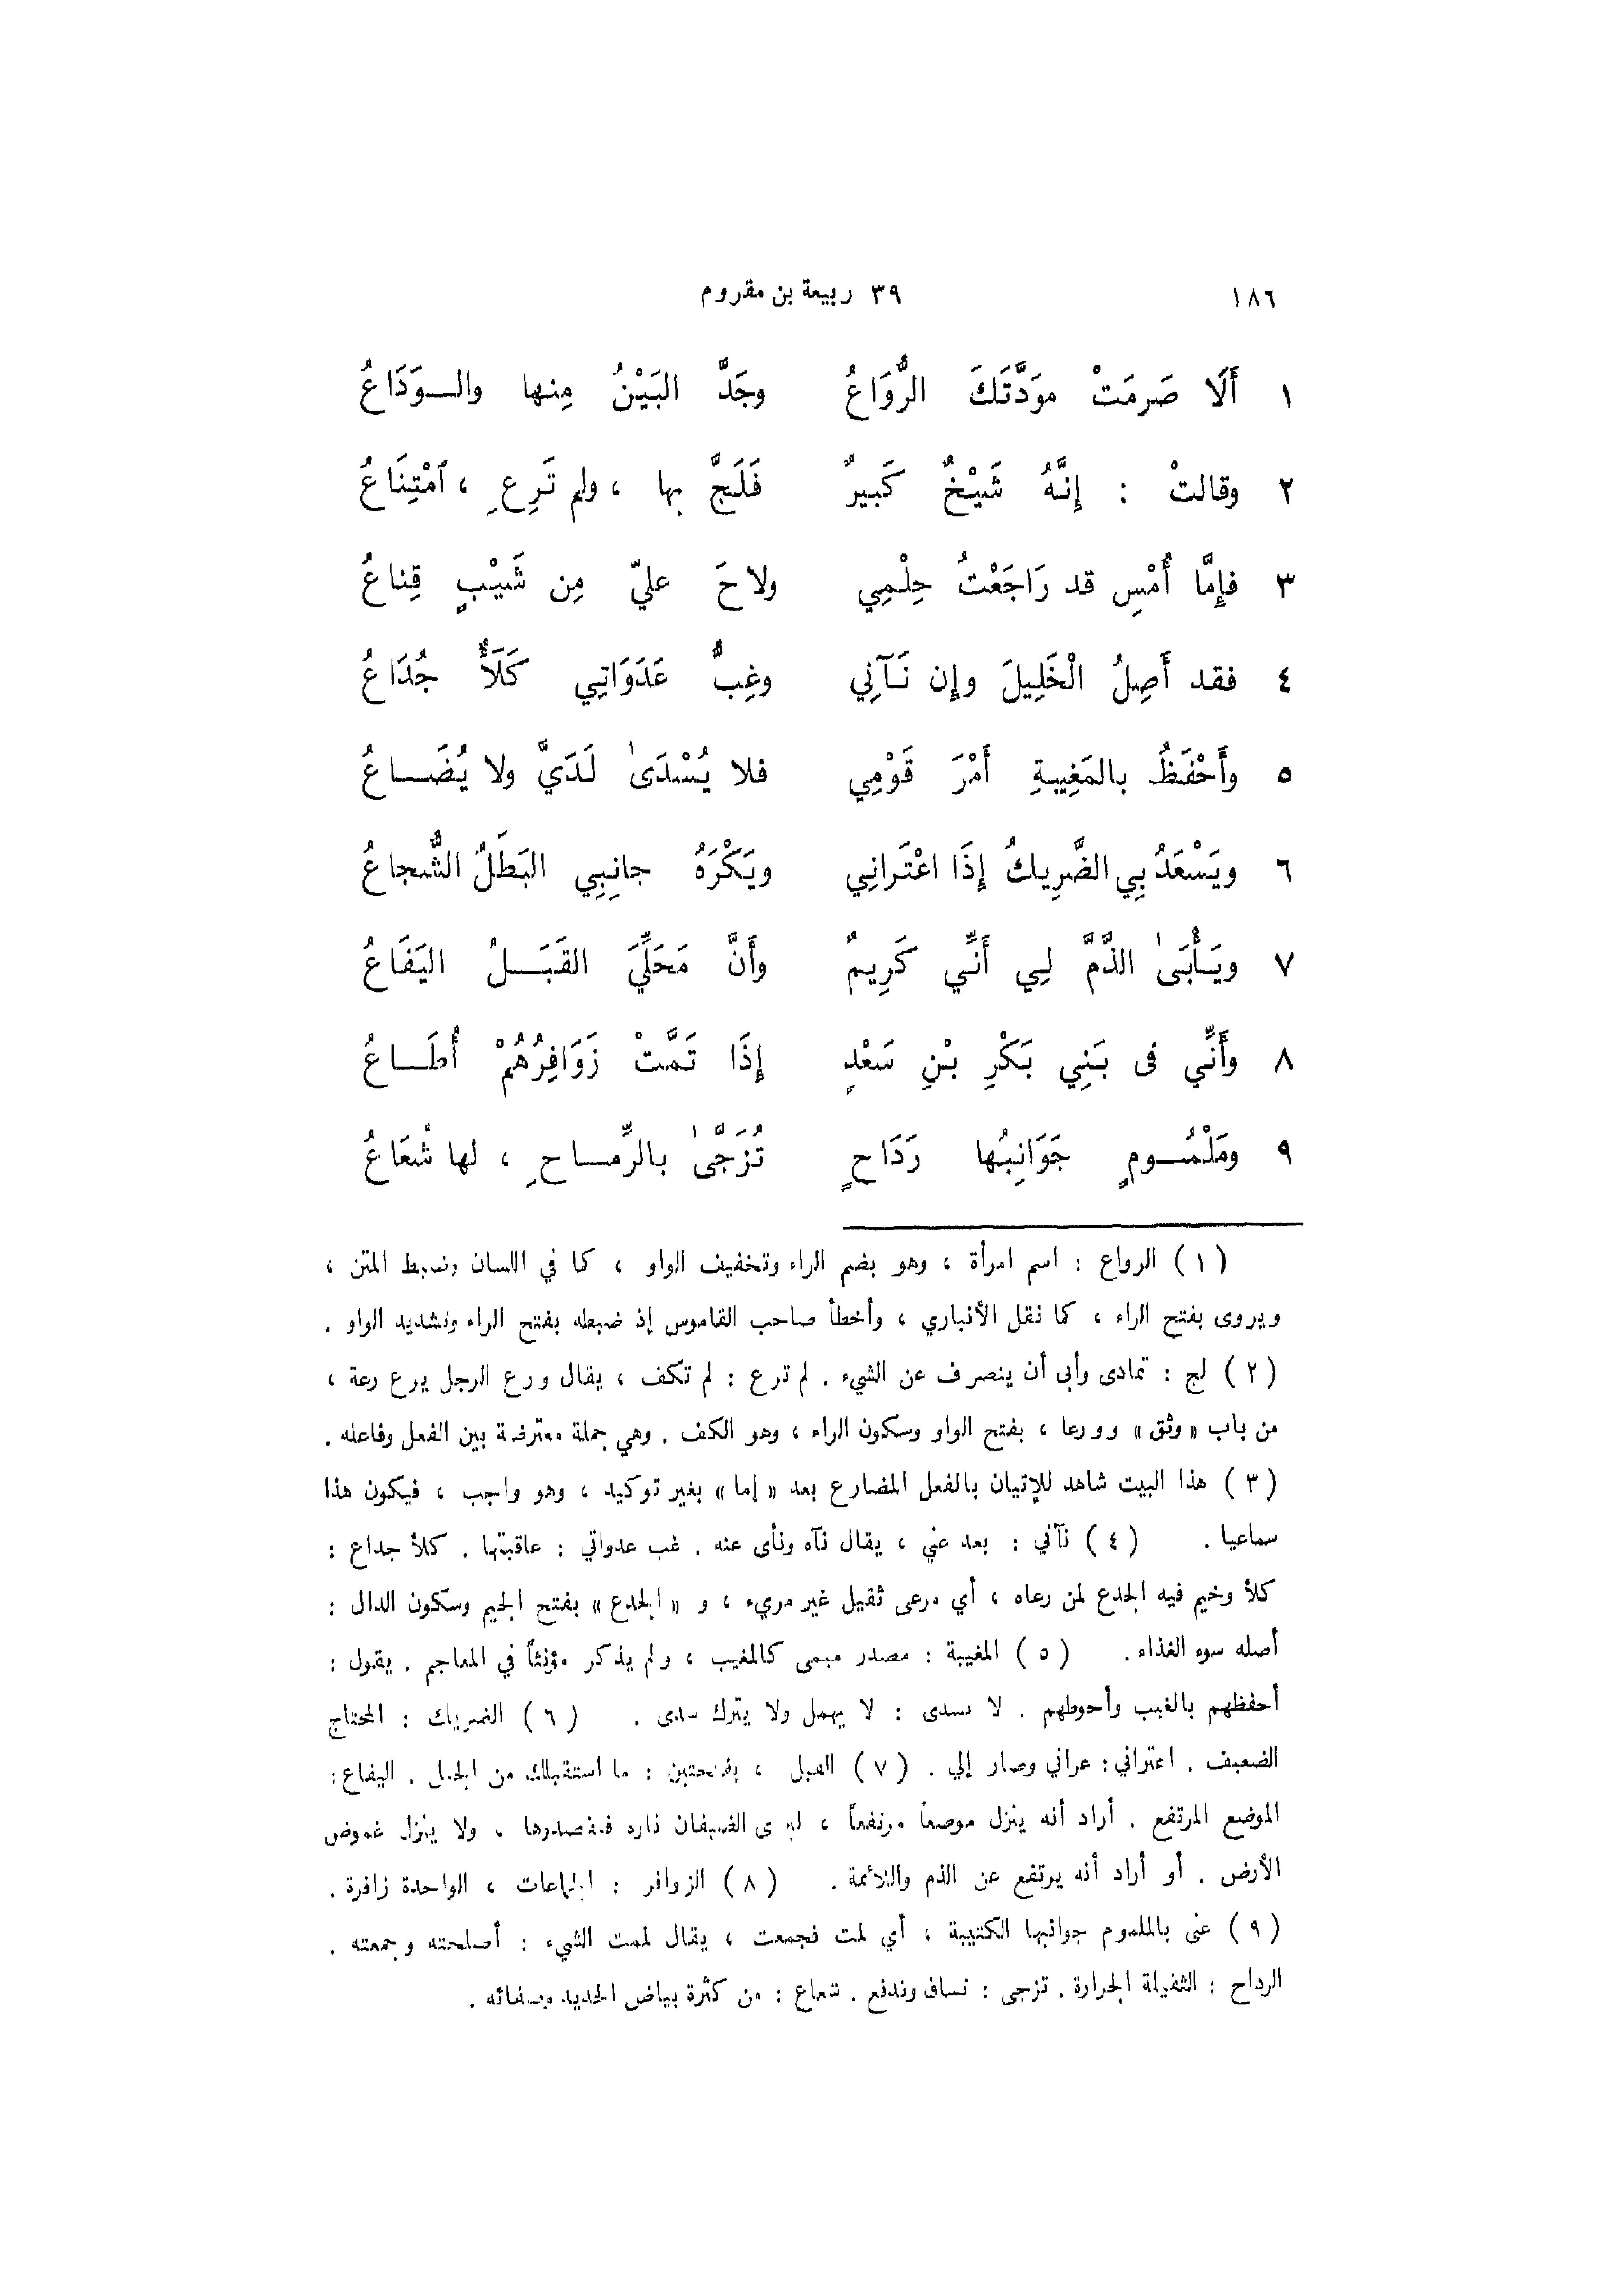 ١٨٦ ٣٩ ربيعة بن مقروم
١ أَلَا صَرمَتْ موَدَّتَكَ الرُّوَاعُ وجَدَّ البَيْنُ مِنها والــوَدَاعُ
٢ وقالتْ : إِنَّهُ شَيْخٌ كَبيرٌ فَلَجَّ بها ، ولم تَرِعِ ، ٱمْتِنَاعُ
٣ فإِمَّا أُمْسِ قد رَاجَعْتُ حِلْمِي ولاحَ عليّ مِن شَيْبٍ قِناعُ
٤ فقد أَصِلُ الْخَلِيلَ وإن نَـآنِي وغِبُّ عَدَوَاتِي كَلَأٌ جُدَاعُ
٥ وأَحْفَظُ بالمَغِيبةِ أَمْرَ قَوْمِي فلا يُسْدَىٰ لَدَيَّ ولا يُضَــاعُ
٦ ويَسْعَدُ بِي الضَّرِيكُ إِذَا اعْتَرانِي ويَكْرَهُ جانِبِي البَطَلُ الشُّجاعُ
٧ ويَأْبَىٰ الذَّمَّ لِي أَنِّي كَرِيمٌ وأَنَّ مَحَلِّيَ القَبَــلُ اليَفَاعُ
٨ وأَنِّي فى بَنِي بَكْرِ بْنِ سَعْدٍ إِذَا تَمَّتْ زَوَافِرُهُمْ أُطَــاعُ
٩ ومَلْمُــومٍ جَوَانِبُها رَدَاحٍ تُزَجَّىٰ بالرِّمــاحِ ، لها شُعَاعُ
( ١ ) الرواع : اسم امرأة ، وهو بضم الراء وتخفيف الواو ، كما في اللسان وضبط المتن ،
ويروى بفتح الراء ، كما نقل الأنباري ، وأخطأ صاحب القاموس إذ ضبطه بفتح الراء وتشديد الواو .
( ٢ ) لج : تمادى وأبى أن ينصرف عن الشيء . لم ترع : لم تكف ، يقال ورع الرجل يرع رعة ،
من باب « وثق » وورعا ، بفتح الواو وسكون الراء ، وهو الكف . وهي جملة معترضة بين الفعل وفاعله .
( ٣ ) هذا البيت شاهد للإتيان بالفعل المضارع بعد « إما » بغير توكيد ، وهو واجب ، فيكون هذا
سماعيا . ( ٤ ) نآني : بعد عني ، يقال نآه ونأى عنه . غب عدواتي : عاقبتها . كلأ جداع :
كلأ وخيم فيه الجدع لمن رعاه ، أي مرعى ثقيل غير مريء ، و « الجدع » بفتح الجيم وسكون الدال :
أصله سوء الغذاء . ( ٥ ) المغيبة : مصدر ميمى كالمغيب ، ولم يذكر مؤنثاً في المعاجم . يقول :
أحفظهم بالغيب وأحوطهم . لا يسدى : لا يهمل ولا يترك سدى . ( ٦ ) الضريك : المحتاج
الضعيف . اعتراني : عراني وصار إلي . ( ٧ ) القبل ، بفتحتين : ما استقبلك من الجبل . اليفاع :
الموضع المرتفع . أراد أنه ينزل موضعاً مرتفعاً ، ليرى الضيفان ناره فيقصدرها ، ولا ينزل غموض
الأرض . أو أراد أنه يرتفع عن الذم واللائمة . ( ٨ ) الزوافر : الجماعات ، الواحدة زافرة .
( ٩ ) عنى بالملموم جوانبها الكتيبة ، أي لمت فجمعت ، يقال لممت الشيء : أصلحته وجمعته .
الرداح : الثقيلة الجرارة . تزجى : تساق وتدفع . شعاع : من كثرة بياض الحديد وصفائه .